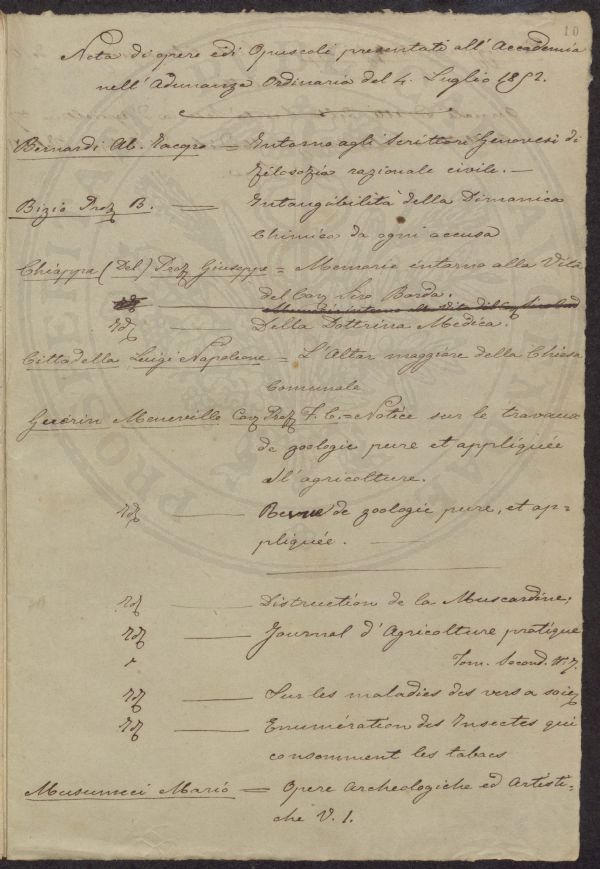 10
Nota di opere edi Opuscoli presentati all'Accademia
nell'Adunanza Ordinaria del 4. Luglio 1852.
Bernardi Ab. Jacopo = Intorno agli Scrittori Genovesi di
Filosofia razionale civile. —
Bizio Prof B. — Intangibilità della Dinamica
Chimica da ogni accusa
Chiappa (Del) Prof Giuseppe = Memorie intorno alla Vita
del Cav Siro Borda.
Id — Della Dottrina Medica.
Cittadella Luigi Napoleone = L'Altar maggiore della Chiesa
Comunale
Guérin Meneville Cav Prof F. E. = Notice sur le travaux
de zoologie pure et appliquée
all'agricolture.
Id — Revue de zoologie pure, et ap=
pliquée. —
Id — Distruction de la Muscardine;
Id — Journal d'Agricolture pratique
Tom. Second. N. 7.
Id — Sur les maladies des vers a soie
Id — Enumération des Insectes qui
consomment les tabacs
Musumeci Mario = Opere Archeologiche ed Artisti=
che V. 1.